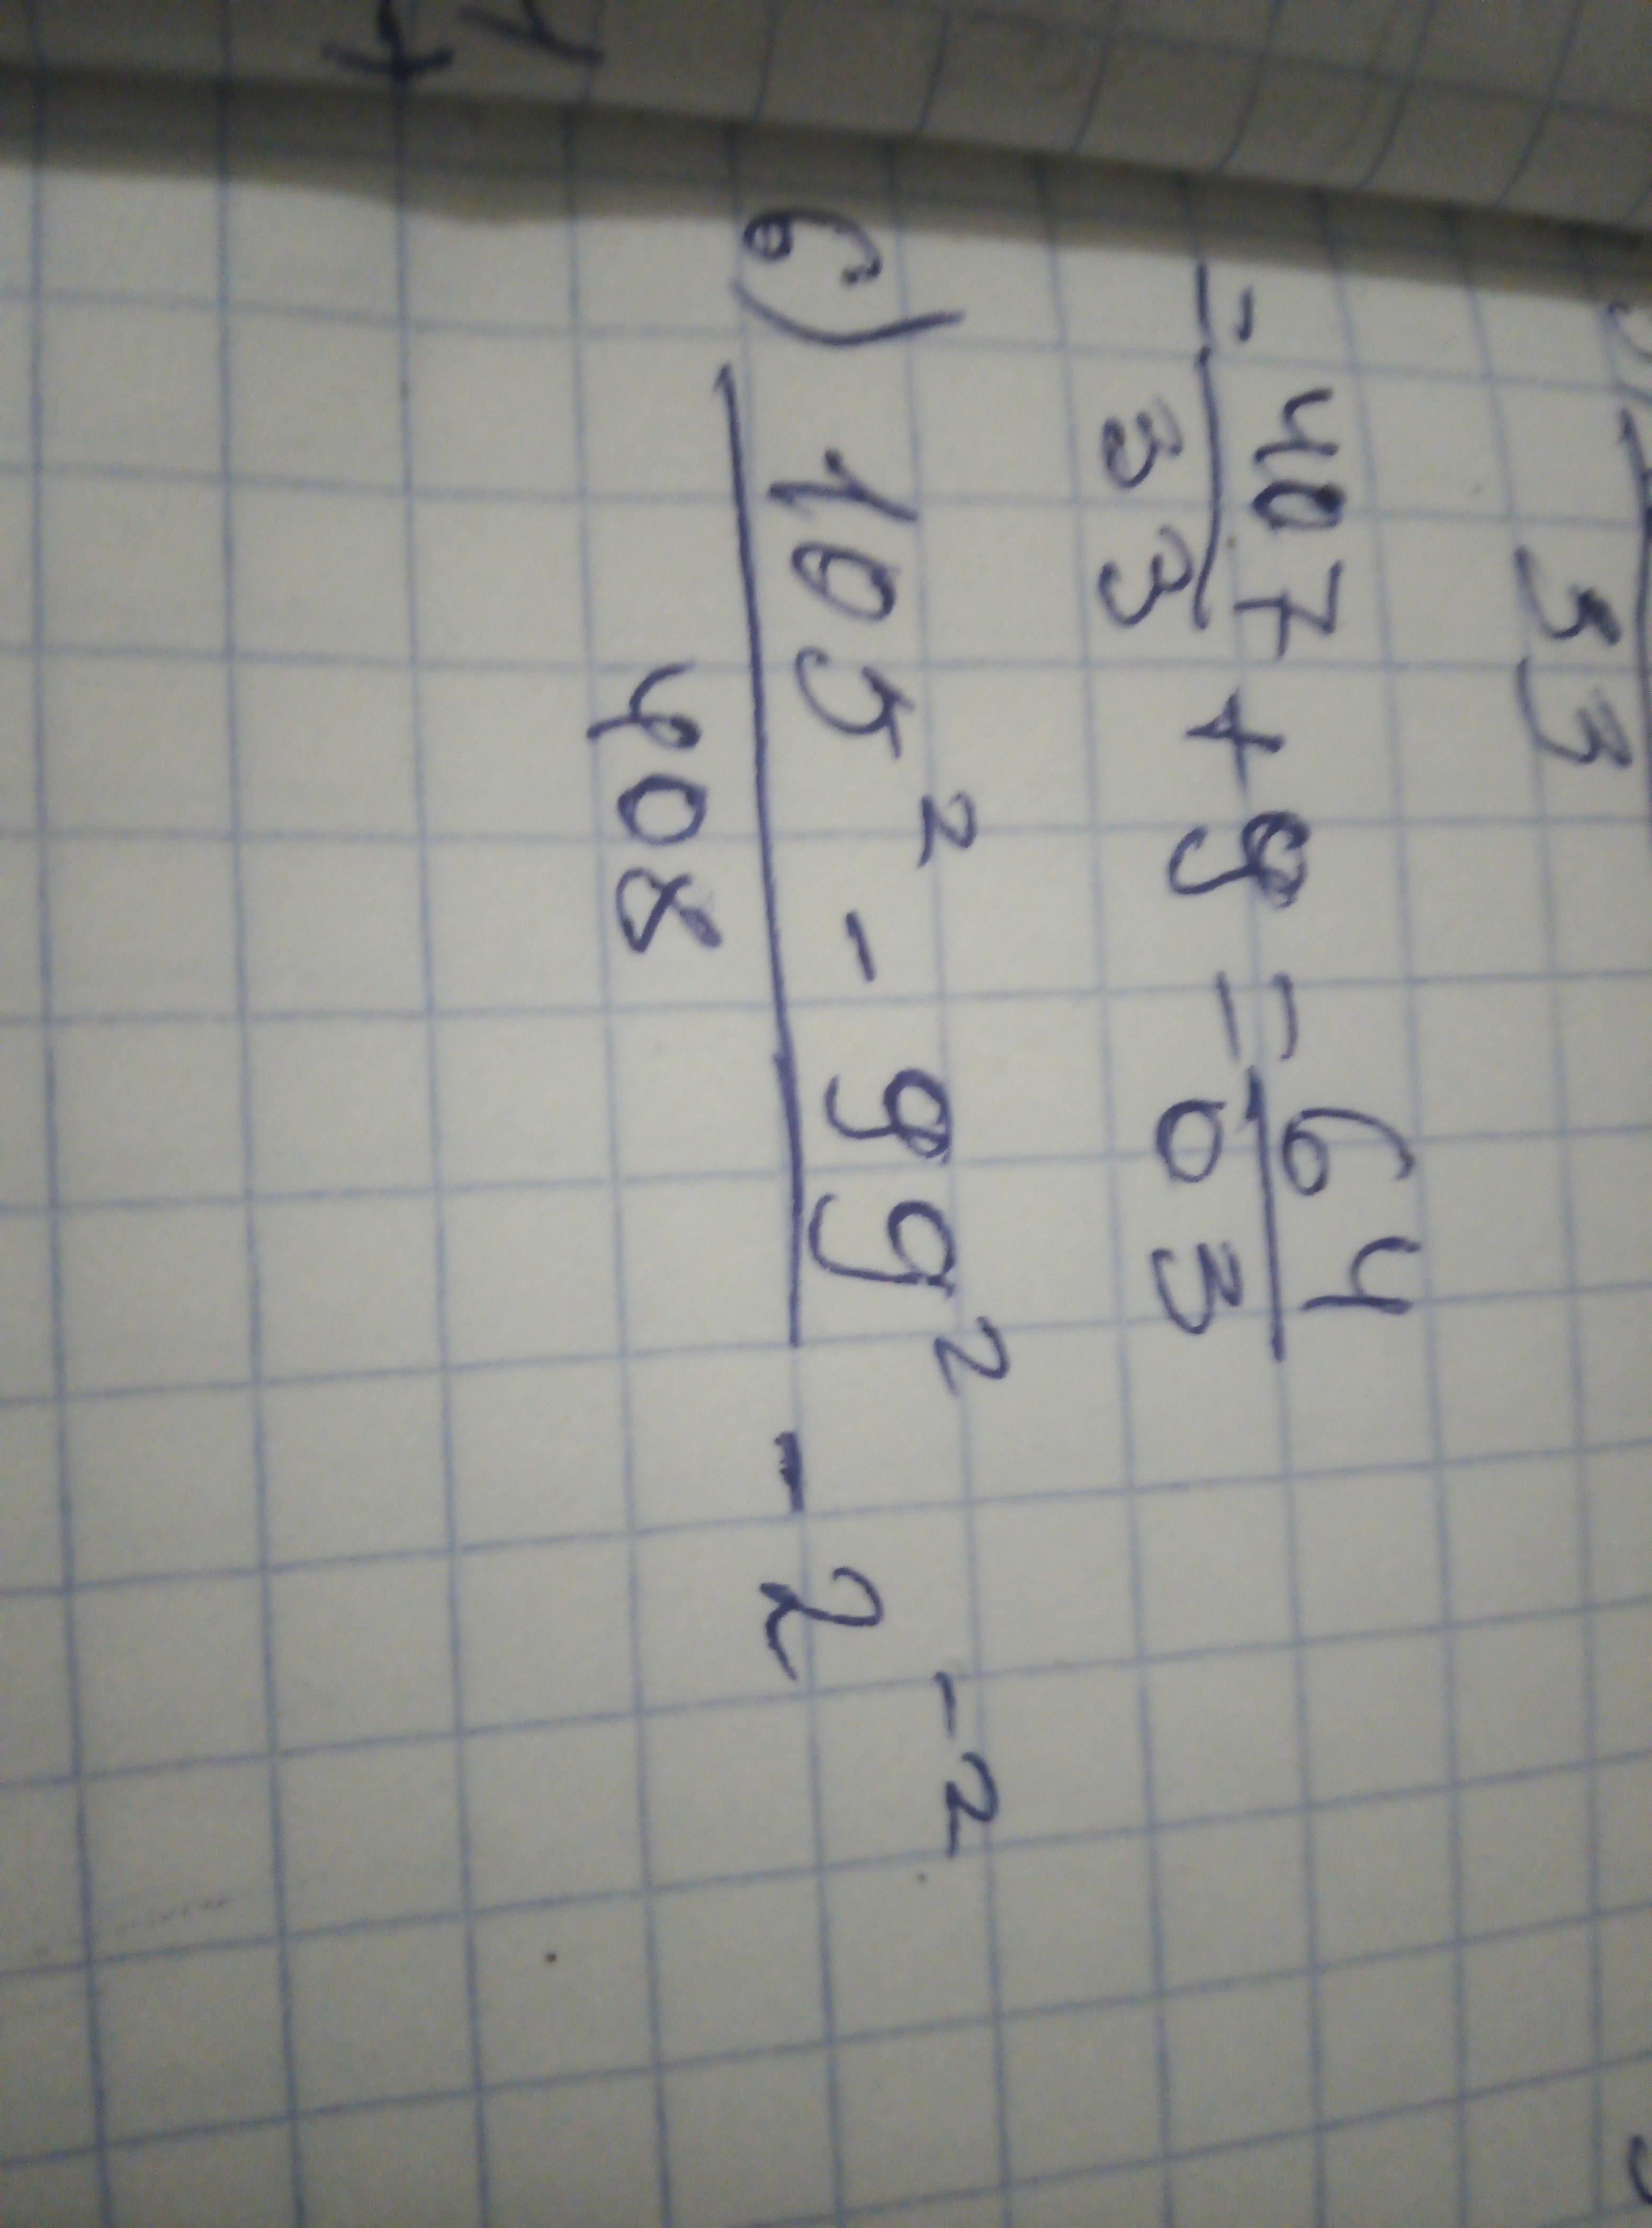 33
= 407/33 + 9 = 64/03
б) (105² - 99²)/408 - 2⁻²